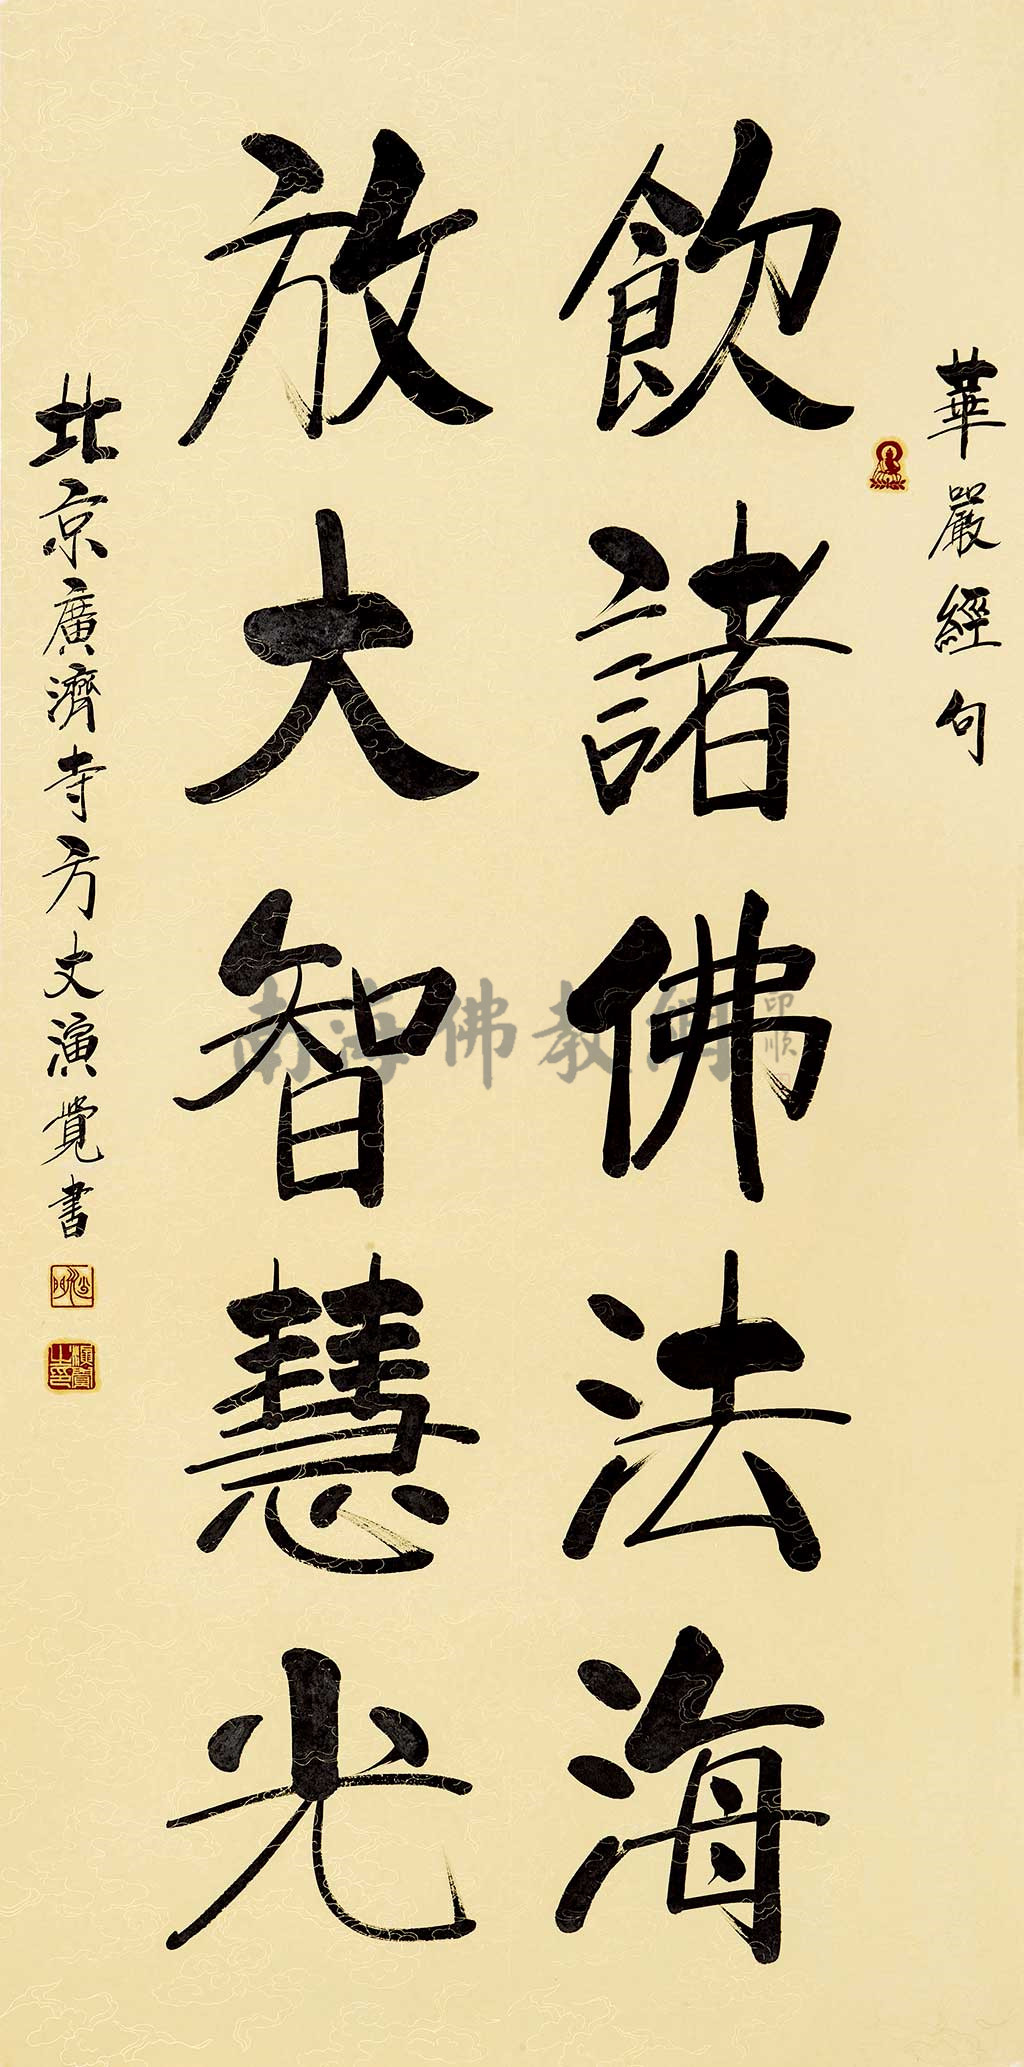 華嚴經句
飲諸佛法海
放大智慧光
北京廣濟寺方丈演覺書
南海佛教網
印順